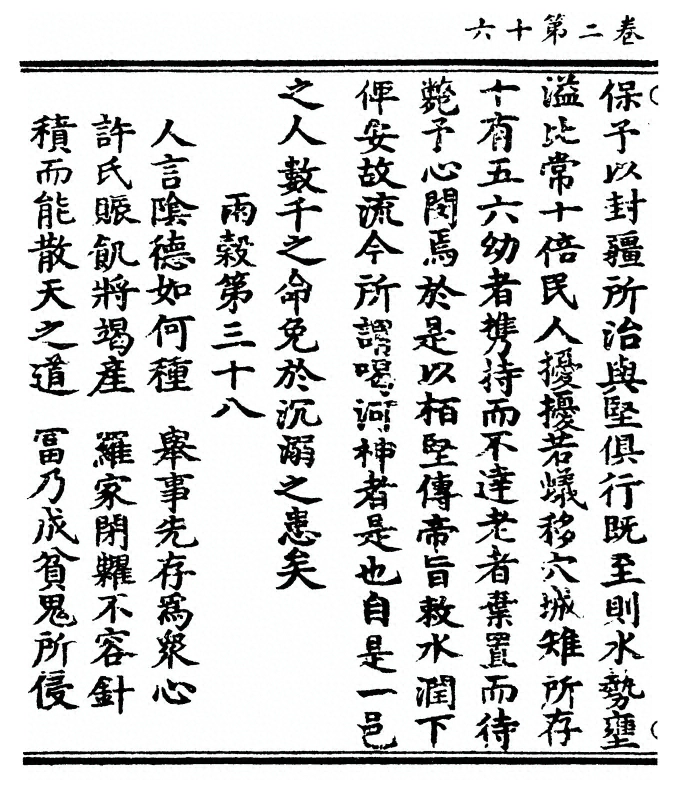 卷二第十六
保予以封疆所治與堅俱行既至則水勢壅
溢比常十倍民人擾擾若蟻移穴城雉所存
十有五六幼者携持而不達老者棄置而待
斃予心閔焉於是以栢堅傳帝旨敕水潤下
俾安故流今所謂喝河神者是也自是一邑
之人數千之命免於沉溺之患矣
雨穀第三十八
人言陰德如何種　舉事先存爲衆心
許氏賑飢將竭產　羅家閉糶不容針
積而能散天之道　冨乃成貧鬼所侵